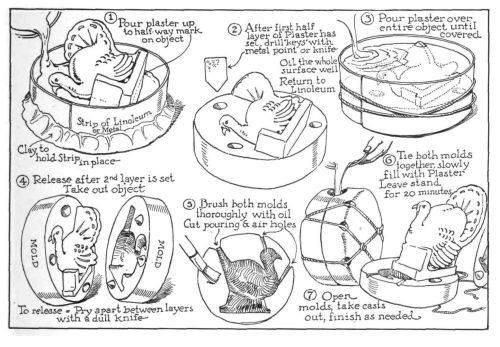 ① Pour plaster up
to half-way mark
on object
Strip of Linoleum
or Metal
Clay to
hold Strip in place-
② After first half
layer of Plaster has
set, drill "keys" with
metal point or knife
Oil the whole
surface well
Return to
Linoleum
③ Pour plaster over
entire object until
covered
④ Release after 2nd layer is set
Take out object
MOLD
MOLD
To release - Pry apart between layers
with a dull knife-
⑤ Brush both molds
thoroughly with oil
Cut pouring & air holes
⑥ Tie both molds
together, slowly
fill with Plaster
Leave stand
for 20 minutes
⑦ Open
molds, take casts
out, finish as needed